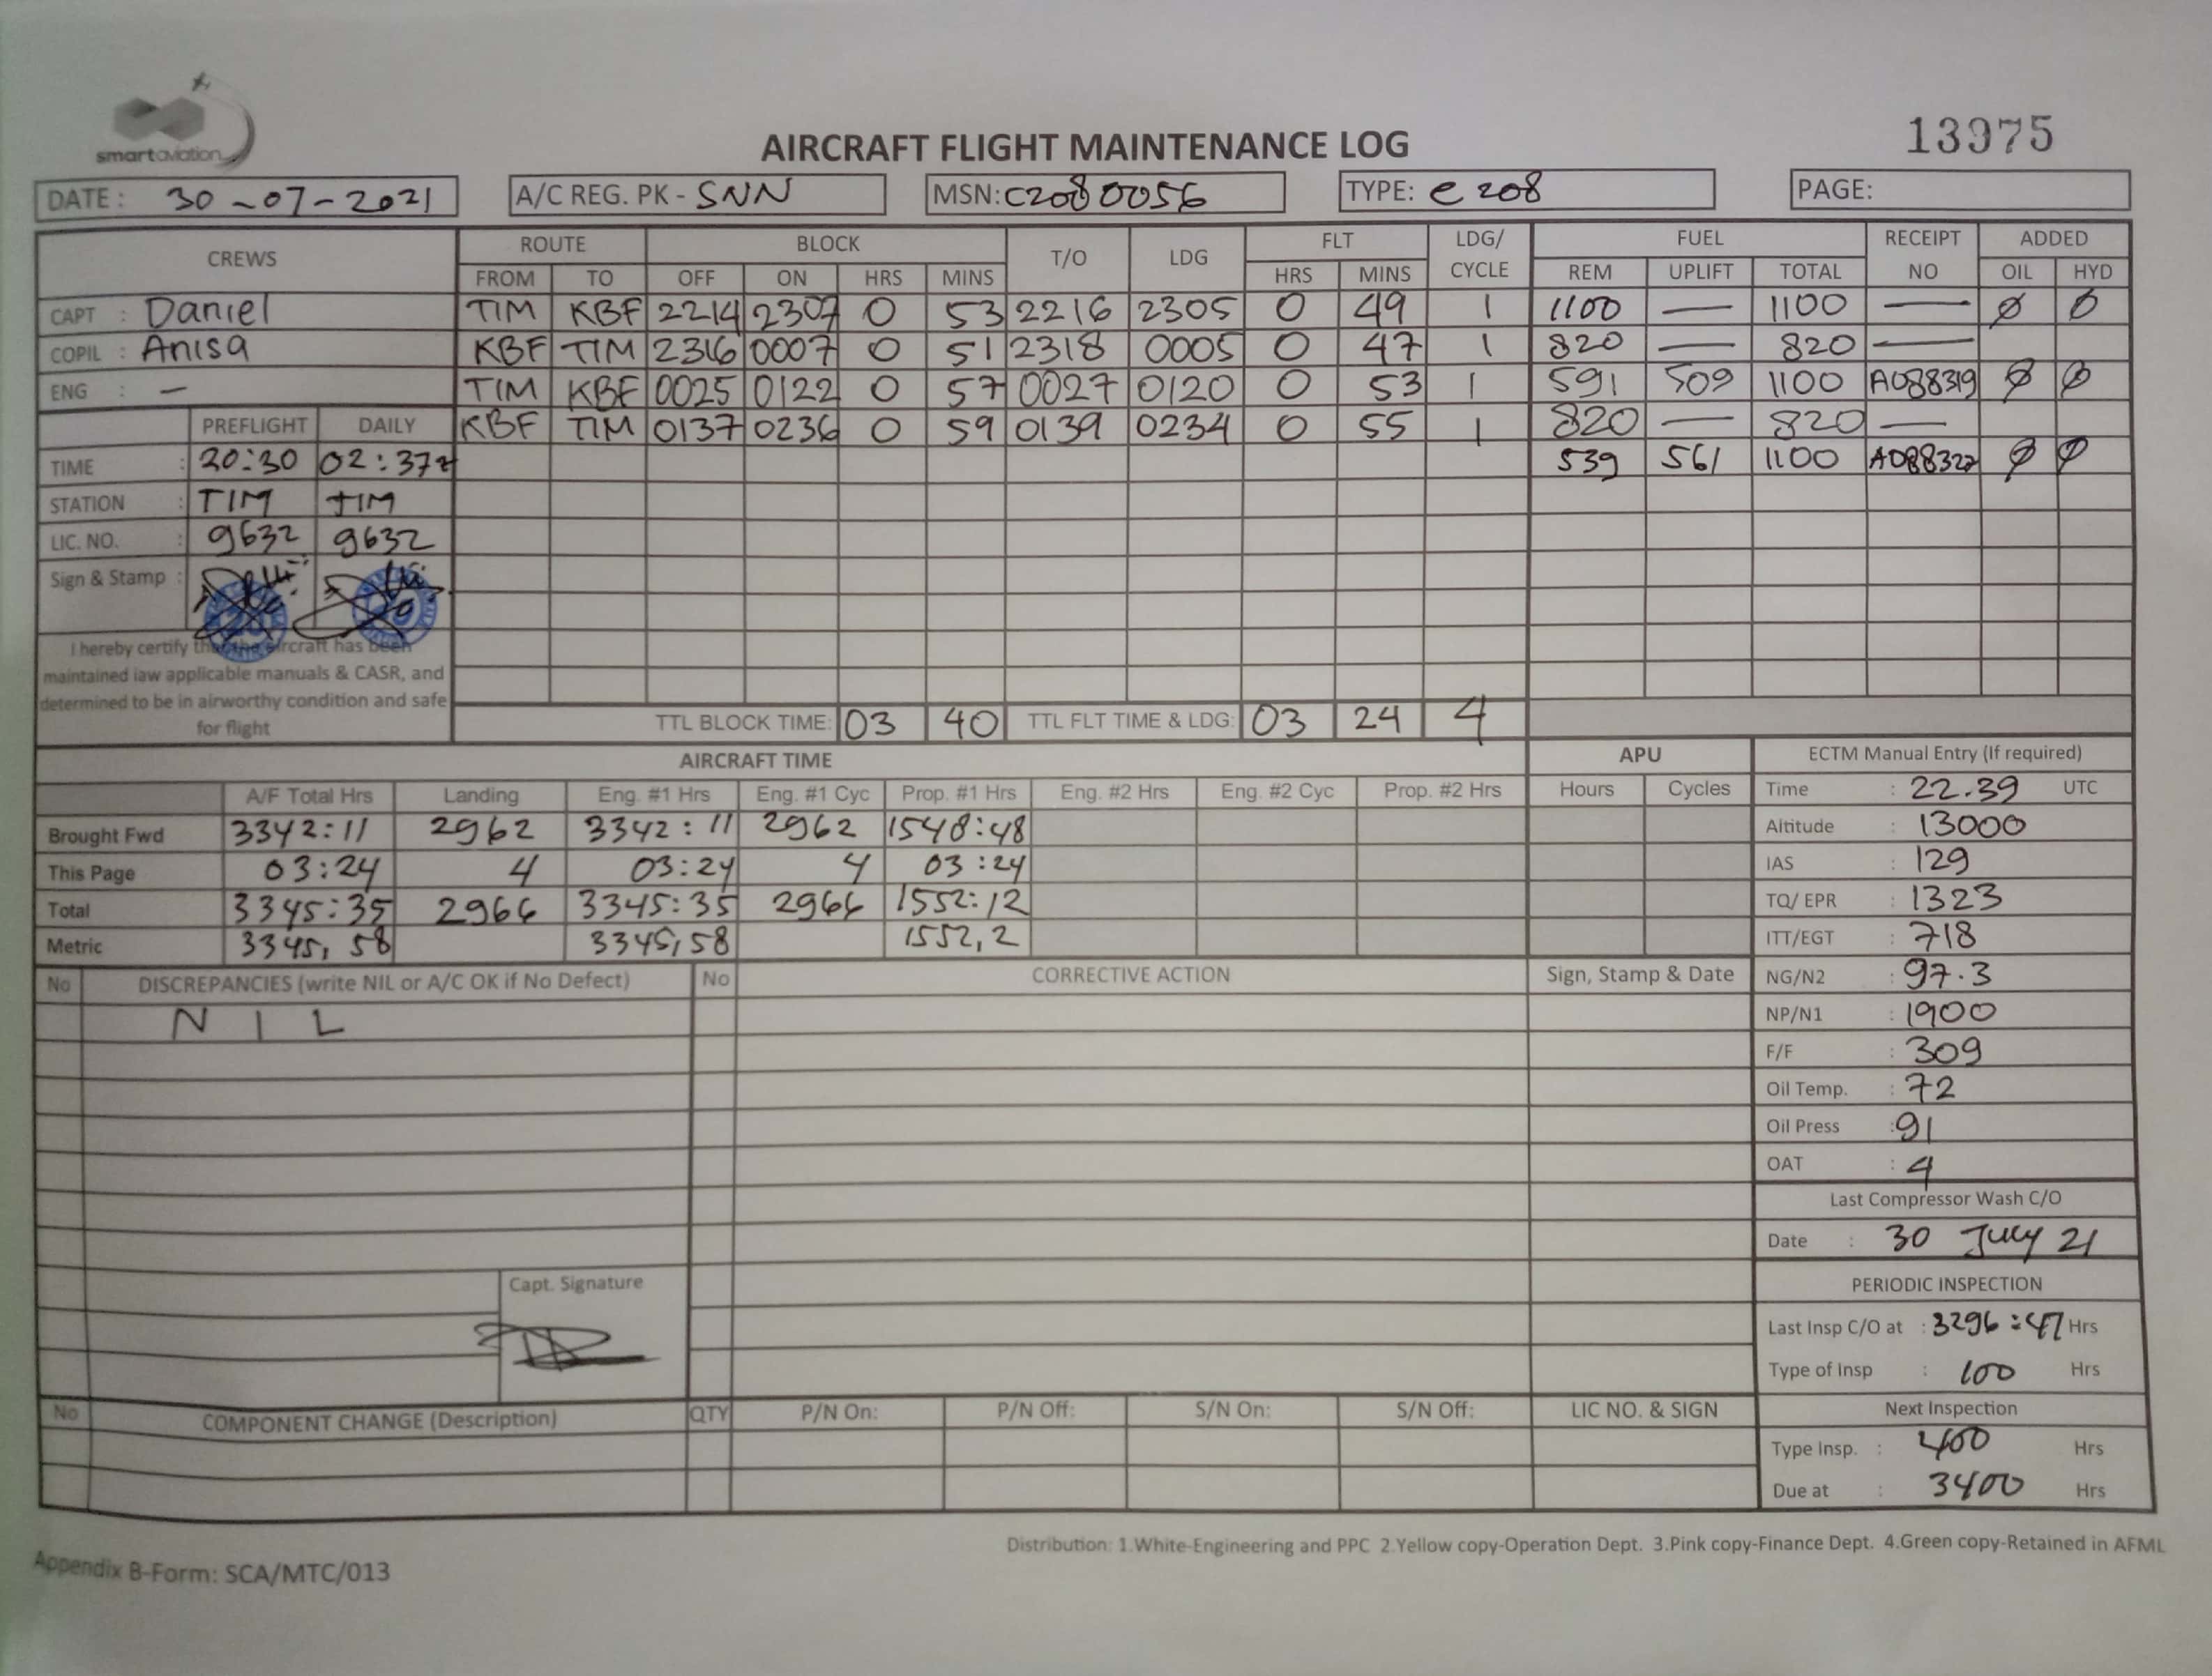 smartaviation
AIRCRAFT FLIGHT MAINTENANCE LOG
13975
DATE : 30-07-2021 A/C REG. PK - SNN MSN: C2080056 TYPE: C208 PAGE:
CREWS ROUTE BLOCK T/O LDG FLT LDG/ CYCLE FUEL RECEIPT NO ADDED
FROM TO OFF ON HRS MINS HRS MINS REM UPLIFT TOTAL OIL HYD
CAPT : Daniel TIM KBF 2214 2307 0 53 2216 2305 0 49 1 1100 — 1100 — Ø Ø
COPIL : Anisa KBF TIM 2316 0007 0 51 2318 0005 0 47 1 820 — 820 —
ENG : — TIM KBF 0025 0122 0 57 0027 0120 0 53 1 591 509 1100 A088319 Ø Ø
PREFLIGHT DAILY KBF TIM 0137 0236 0 59 0139 0234 0 55 1 820 — 820 —
TIME : 20:30 02:37z 539 561 1100 Ø Ø
STATION : TIM TIM
LIC. NO. : 9632 9632
Sign & Stamp :
I hereby certify that the aircraft has been
maintained iaw applicable manuals & CASR, and
determined to be in airworthy condition and safe
for flight
TTL BLOCK TIME: 03 40 TTL FLT TIME & LDG: 03 24 4
AIRCRAFT TIME APU ECTM Manual Entry (If required)
A/F Total Hrs Landing Eng. #1 Hrs Eng. #1 Cyc Prop. #1 Hrs Eng. #2 Hrs Eng. #2 Cyc Prop. #2 Hrs Hours Cycles Time : 22.39 UTC
Brought Fwd 3342:11 2962 3342:11 2962 1548:48 Altitude : 13000
This Page 03:24 4 03:24 4 03:24 IAS : 129
Total 3345:35 2966 3345:35 2966 1552:12 TQ/ EPR : 1323
Metric 3345,58 3345,58 1552,2 ITT/EGT : 718
No DISCREPANCIES (write NIL or A/C OK if No Defect) No CORRECTIVE ACTION Sign, Stamp & Date NG/N2 : 97.3
N I L NP/N1 : 1900
F/F : 309
Oil Temp. : 72
Oil Press : 91
OAT : 4
Last Compressor Wash C/O
Date : 30 July 21
Capt. Signature PERIODIC INSPECTION
Last Insp C/O at : 3296:47 Hrs
Type of Insp : 100 Hrs
No COMPONENT CHANGE (Description) QTY P/N On: P/N Off: S/N On: S/N Off: LIC NO. & SIGN Next Inspection
Type Insp. : 400 Hrs
Due at : 3400 Hrs
Distribution: 1.White-Engineering and PPC 2.Yellow copy-Operation Dept. 3.Pink copy-Finance Dept. 4.Green copy-Retained in AFML
Appendix B-Form: SCA/MTC/013